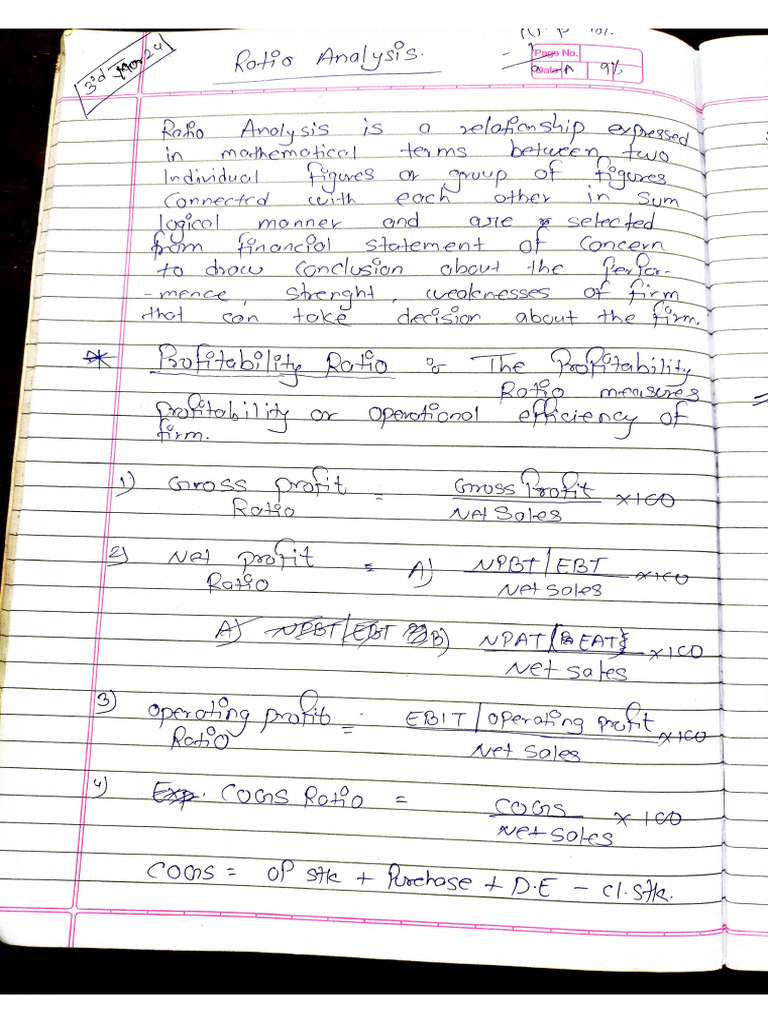 3rd Nov 24
Ratio Analysis.
Page No.
Date
9%
Ratio Analysis is a relationship expressed
in mathematical terms between two
Individual figures or group of figures
Connected with each other in sum
logical manner and are selected
from financial statement of concern
to draw conclusion about the Perfor-
-mence, strenght, weaknesses of firm
that can take decision about the firm.
* Profitability Ratio : The Profitability
Ratio measures
profitability or operational efficiency of
firm.
1) Gross profit Ratio = Gross Profit / Net Sales × 100
2) Net profit Ratio = A) NPBT/EBT / Net sales × 100
A) NPBT/EBT B) NPAT/EAT / Net sales × 100
3) Operating profit Ratio = EBIT/Operating profit / Net sales × 100
4) Exp. COGS Ratio = COGS / Net Sales × 100
COGS = OP stk + Purchase + D.E - cl.stk.